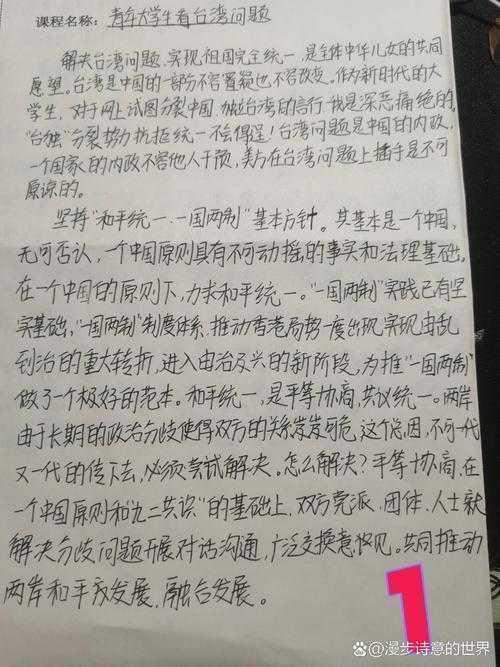 课程名称: 青年大学生看台湾问题
解决台湾问题、实现祖国完全统一,是全体中华儿女的共同
愿望。台湾是中国的一部分不容置疑也不容改变。作为新时代的大
学生,对于网上试图分裂中国、独立台湾的言行我是深恶痛绝的,
"台独"分裂势力抗拒统一不会得逞!台湾问题是中国的内政,
一个国家的内政不容他人干预,美方在台湾问题上插手是不可
原谅的。
坚持"和平统一、一国两制"基本方针。其基本是一个中国,
无可否认,一个中国原则具有不可动摇的事实和法理基础。
在一个中国的原则下,力求和平统一。"一国两制"实践已有坚
实基础,"一国两制"制度体系、推动香港局势一度出现实现由乱
到治的重大转折,进入由治及兴的新阶段,为推"一国两制"
做了一个极好的范本。和平统一,是平等协商,共议统一。两岸
由于长期的政治分歧使得双方的关系岌岌可危,这个总因,不可一代
又一代的传下去,必须尝试解决。怎么解决?平等协商,在
一个中国原则和"九二共识"的基础上,双方党派、团体、人士就
解决分歧问题开展对话沟通,广泛交换意见。共同推动
两岸和平发展、融合发展。
1
@漫步诗意的世界